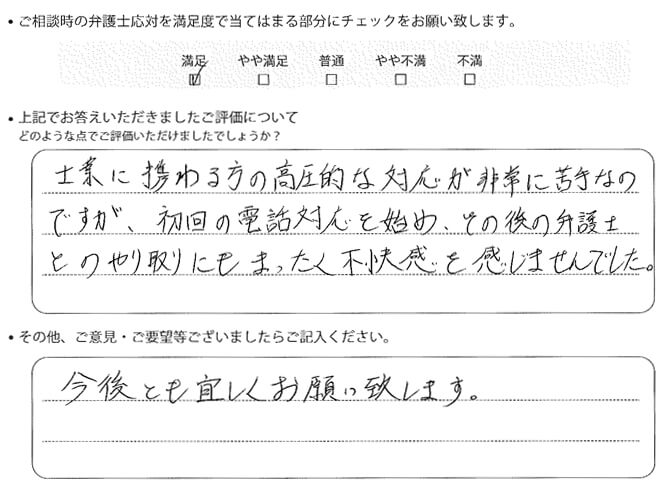 • ご相談時の弁護士応対を満足度で当てはまる部分にチェックをお願い致します。
満足 やや満足 普通 やや不満 不満
• 上記でお答えいただきましたご評価について
どのような点でご評価いただけましたでしょうか？
士業に携わる方の高圧的な対応が非常に苦手なの
ですが、初回の電話対応を始め、その後の弁護士
とのやり取りにもまったく不快感を感じませんでした。
• その他、ご意見・ご要望等ございましたらご記入ください。
今後とも宜しくお願い致します。